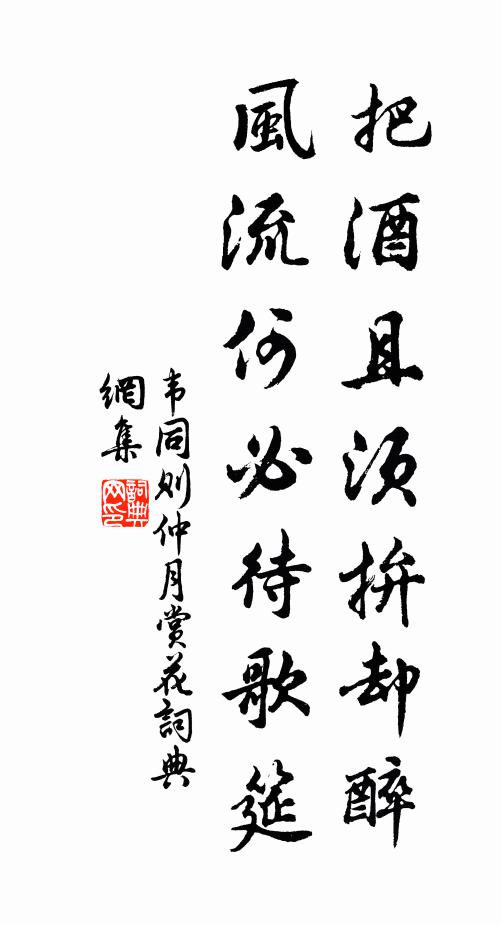 把酒且須拚却醉
風流何必待歌筵
韦同则仲月赏花詞典
網集
詞典
网印